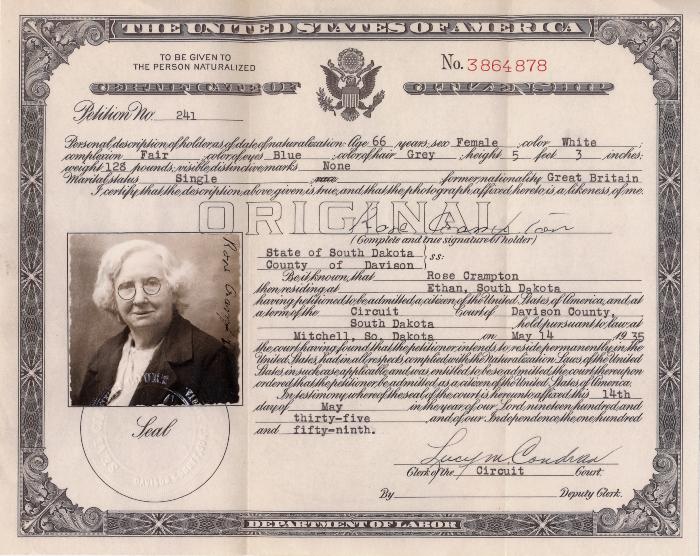 THE UNITED STATES OF AMERICA
TO BE GIVEN TO
THE PERSON NATURALIZED
No. 3864878
CERTIFICATE OF CITIZENSHIP
Petition No. 241
Personal description of holder as of date of naturalization: Age 66 years, sex Female color White
complexion Fair color of eyes Blue color of hair Grey height 5 feet 3 inches;
weight 128 pounds; visible distinctive marks None
Marital status Single race former nationality Great Britain
I certify that the description above given is true, and that the photograph affixed hereto is a likeness of me.
ORIGINAL
Rose Crampton
(Complete and true signature of holder)
State of South Dakota
County of Davison ss:
Be it known, that Rose Crampton
then residing at Ethan, South Dakota
having petitioned to be admitted a citizen of the United States of America, and at
a term of the Circuit Court of Davison County,
South Dakota held pursuant to law at
Mitchell, So. Dakota on May 14 1935
the court having found that the petitioner intends to reside permanently in the
United States, had in all respects complied with the Naturalization Laws of the United
States in such case applicable, and was entitled to be so admitted, the court thereupon
ordered that the petitioner be admitted as a citizen of the United States of America.
In testimony whereof the seal of the court is hereunto affixed this 14th
day of May in the year of our Lord nineteen hundred and
thirty-five and of our Independence the one hundred
and fifty-ninth.
Rose Crampton
Seal
Lucy M Condran
Clerk of the Circuit Court.
By Deputy Clerk.
DEPARTMENT OF LABOR